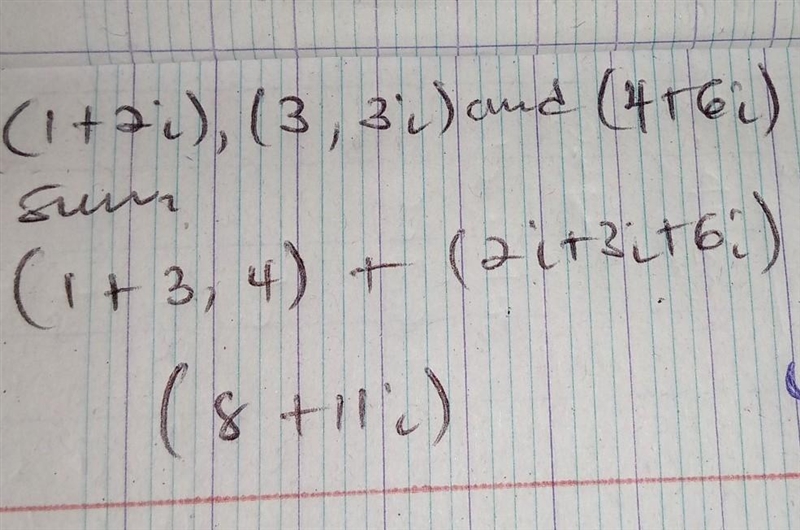 (1+2i), (3, 3i) and (4+6i)
sum:
(1+3, 4) + (2i+3i+6i)
(8 +11i)